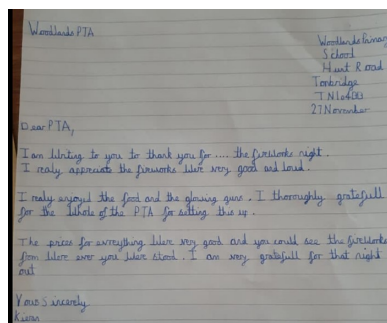 Woodlands PTA
Woodlands Primary
School
Hunt Road
Tonbridge
TN10 4BB
27 November
Dear PTA,
I am Writing to you to thank you for .... the fireworks night.
I realy appreciate the fireworks Were very good and loud.
I realy enjoyed the food and the glowing guns. I thoroughly gratefull
for the Whole of the PTA for setting this up.
The prices for evreything Were very good and you could see the fireworks
from Were ever you Were stood. I am very gratefull for that night
out
Yours Sincerely
Kieran